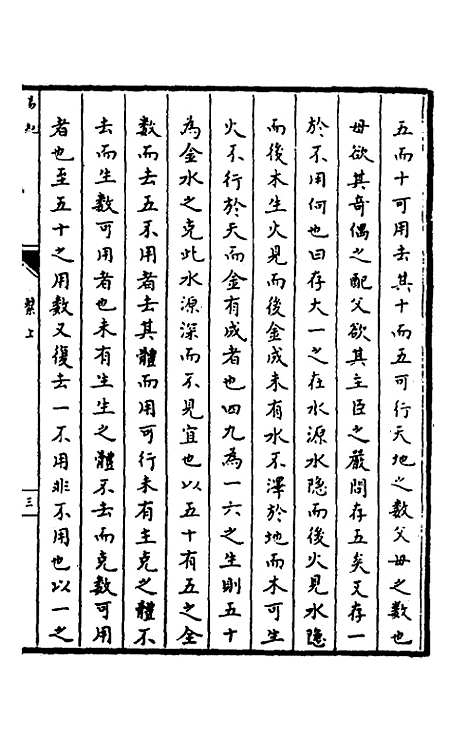 五而十可用去其十而五可行天地之數父毋之數也
毋欲其奇偶之配父欲其主臣之嚴問存五矣又存一
於不用何也曰存大一之在水源水隱而後火見水隱
而後木生火見而後金成未有水不澤於地而木可生
火不行於天而金有成者也四九為一六之生則五十
為金水之克此水源深而不見宜也以五十有五之全
數而去五不用者去其體而用可行未有主克之體不
去而生數可用者也未有生生之體不去而克數可用
者也至五十之用數又復去一不用非不用也以一之
繫上
三